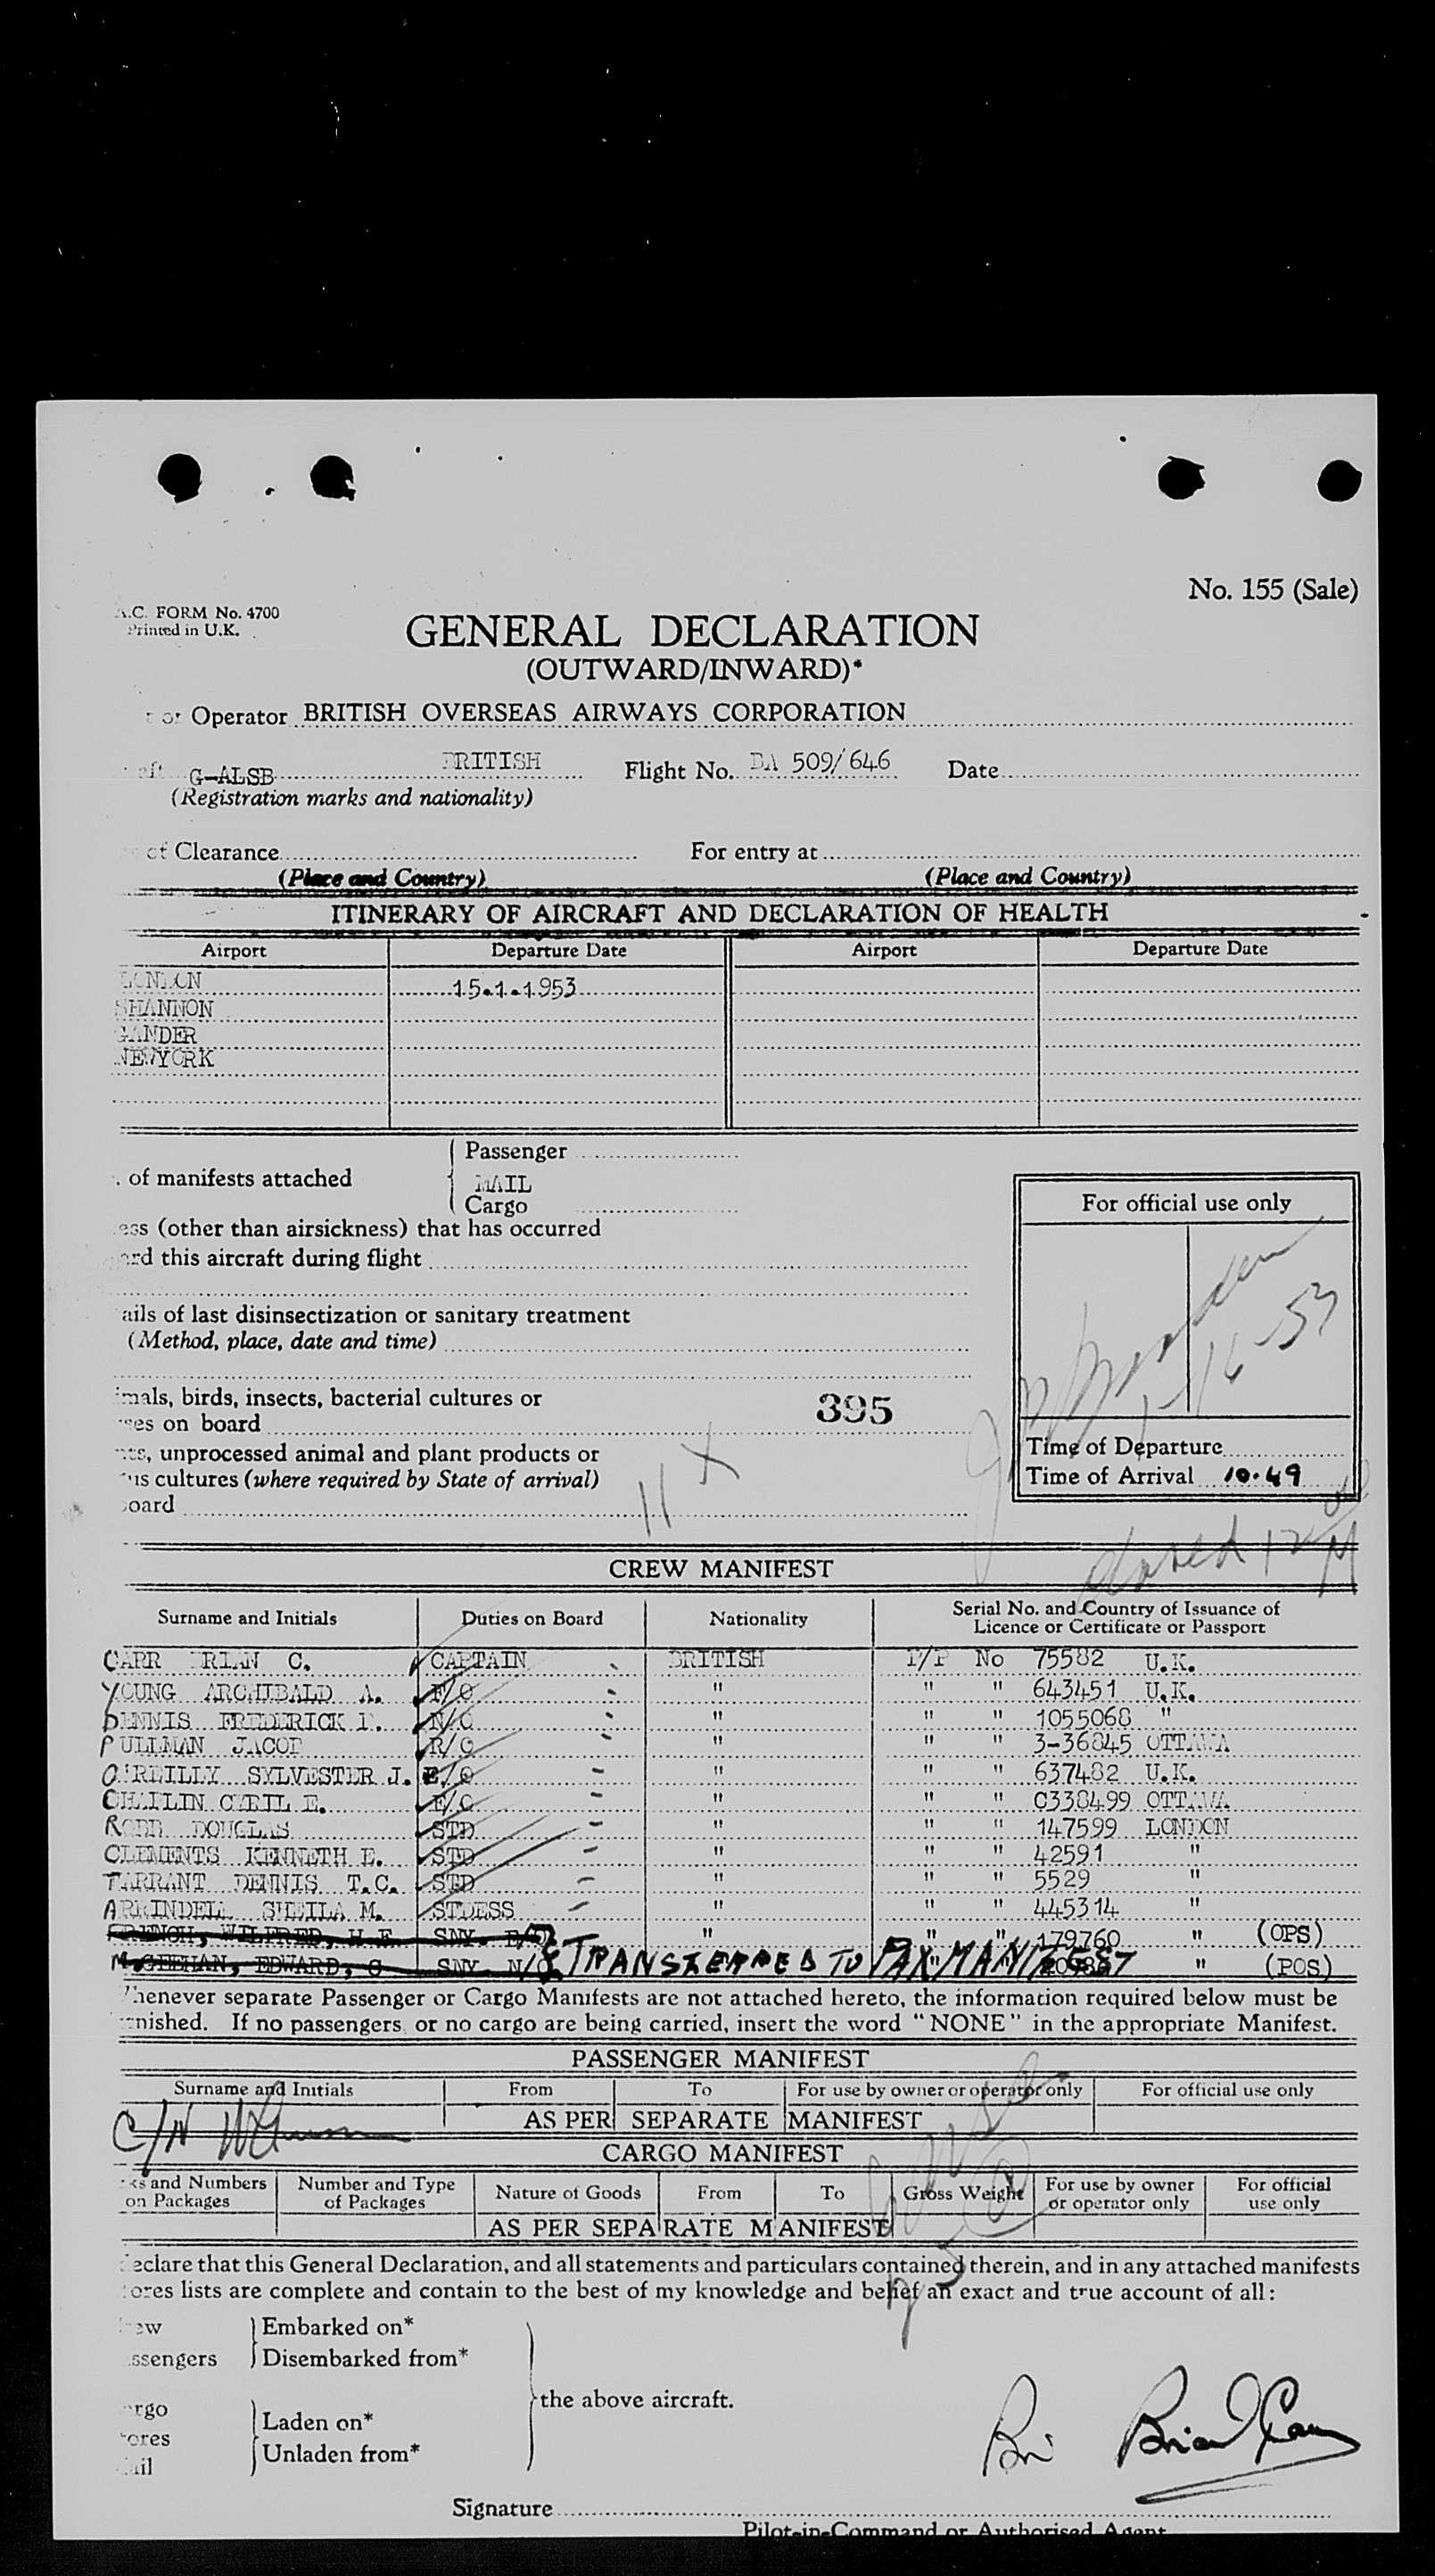 No. 155 (Sale)
A.C. FORM No. 4700
Printed in U.K.
GENERAL DECLARATION
(OUTWARD/INWARD)*
or Operator BRITISH OVERSEAS AIRWAYS CORPORATION
G-ALSB BRITISH Flight No. BA 509/646 Date
(Registration marks and nationality)
of Clearance For entry at
(Place and Country) (Place and Country)
ITINERARY OF AIRCRAFT AND DECLARATION OF HEALTH
Airport Departure Date Airport Departure Date
LONDON 15.1.1953
SHANNON
GANDER
NEWYORK
Passenger
. of manifests attached
MAIL
Cargo
For official use only
ess (other than airsickness) that has occurred
ard this aircraft during flight
1-16-53
ails of last disinsectization or sanitary treatment
(Method, place, date and time)
imals, birds, insects, bacterial cultures or
395
on board
Time of Departure
unprocessed animal and plant products or
us cultures (where required by State of arrival)
Time of Arrival 10.49
oard
11 +
CREW MANIFEST
Surname and Initials Duties on Board Nationality Serial No. and Country of Issuance of Licence or Certificate or Passport
CARR BRIAN C. CAPTAIN BRITISH P/P No 75582 U.K.
YOUNG ARCHIBALD A. F/O " " " 643451 U.K.
DENNIS FREDERICK N/O " " " 1055068 "
PULLMAN JACOB R/O " " " 3-36845 OTTAWA
O'REILLY SYLVESTER J. E/O " " " 637482 U.K.
E. E/O " " " C338499 OTTAWA
ROBB DOUGLAS STD " " " 147599 LONDON
CLEMENTS KENNETH E. STD " " " 42591 "
TARRANT DENNIS T.C. STD " " " 5529 "
ARRINDELL SHEILA M. STDESS " " " 445314 "
FRENCH, WILFRED, H.E. SNY. " " " 179760 " (OPS)
McGEEHAN, EDWARD, SNY. N/O TRANSFERRED TO PAX MANIFEST " (POS)
Whenever separate Passenger or Cargo Manifests are not attached hereto, the information required below must be
nished. If no passengers or no cargo are being carried, insert the word "NONE" in the appropriate Manifest.
PASSENGER MANIFEST
Surname and Initials From To For use by owner or operator only For official use only
AS PER SEPARATE MANIFEST
C/N
CARGO MANIFEST
ks and Numbers on Packages Number and Type of Packages Nature of Goods From To Gross Weight For use by owner or operator only For official use only
AS PER SEPARATE MANIFEST
eclare that this General Declaration, and all statements and particulars contained therein, and in any attached manifests
ores lists are complete and contain to the best of my knowledge and belief an exact and true account of all:
ew Embarked on*
ssengers Disembarked from*
the above aircraft.
rgo Laden on*
ores
ail Unladen from*
Bri Brian Carr
Signature
Pilot-in-Command or Authorised Agent